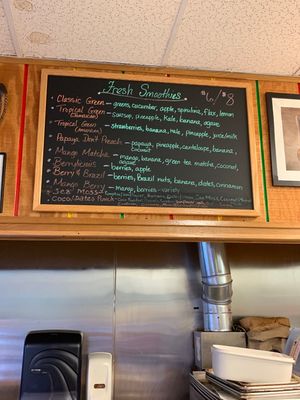 Fresh Smoothies
$6/$8
Classic Green - greens, cucumber, apple, spirulina, flax, lemon
Tropical Green - soursop, pineapple, kale, banana, agave
(Jamaican)
Tropical Green - strawberries, banana, kale, pineapple, juice/milk
(American)
Papaya Don't Preach - papaya, pineapple, cantaloupe, banana,
coconut
Mango Matcha - mango, banana, green tea matcha, coconut,
agave
Berrylicious - berries, apple
Berry & Brazil - berries, Brazil nuts, banana, dates, cinnamon
Mango Berry - mango, berries - variety
Sea Moss
Punch -